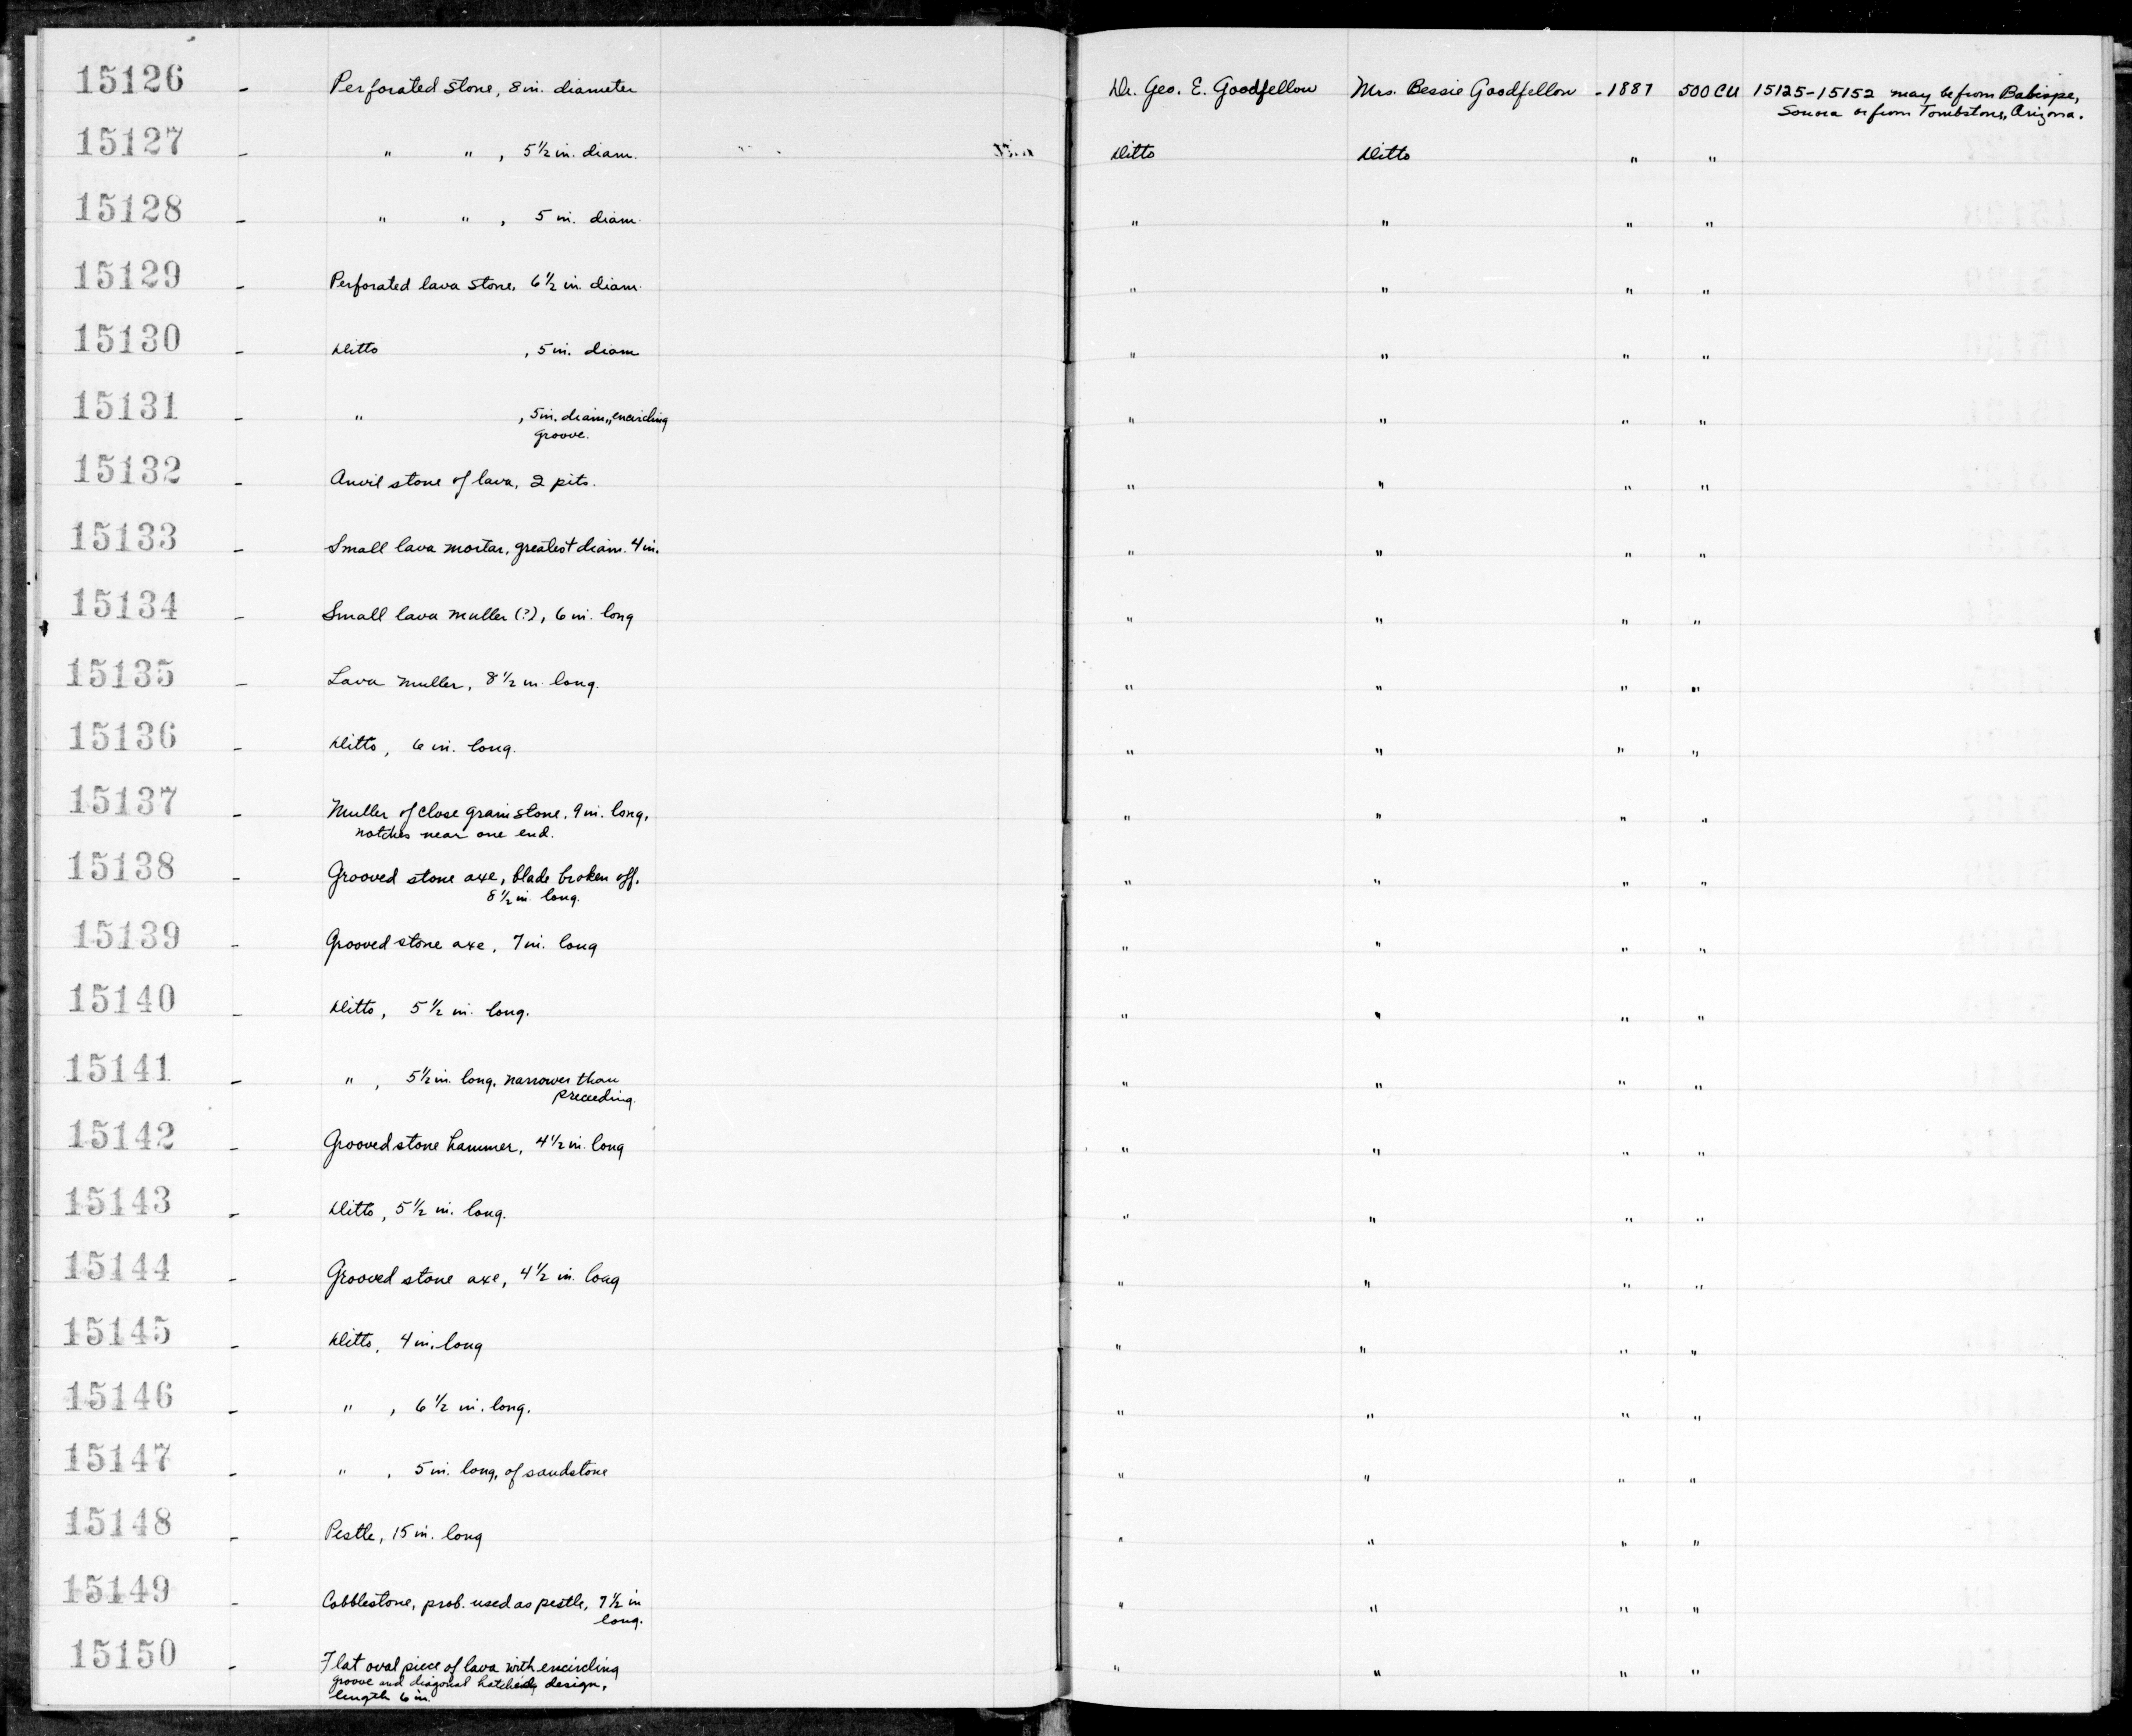 15126 - Perforated stone, 8 in. diameter Dr. Geo. E. Goodfellow Mrs. Bessie Goodfellow -1887 500 CU 15125-15152 may be from Babispe,
Sonora or from Tombstone, Arizona.
15127 - " " , 5 1/2 in. diam. Ditto Ditto " "
15128 - " " , 5 in. diam. " " " "
15129 - Perforated lava stone, 6 1/2 in. diam. " " " "
15130 - Ditto , 5 in. diam " " " "
15131 - " , 5 in. diam., encircling " " " "
groove.
15132 - Anvil stone of lava, 2 pits. " " " "
15133 - Small lava mortar, greatest diam. 4 in. " " " "
15134 - Small lava muller (?), 6 in. long " " " "
15135 - Lava muller, 8 1/2 in. long. " " " "
15136 - Ditto, 6 in. long. " " " "
15137 - Muller of close grain stone, 9 in. long, " " " "
notches near one end.
15138 - Grooved stone axe, blade broken off. " " " "
8 1/2 in. long.
15139 - Grooved stone axe, 7 in. long " " " "
15140 - Ditto, 5 1/2 in. long. " " " "
15141 - " , 5 1/2 in. long, narrower than " " " "
preceding.
15142 - Grooved stone hammer, 4 1/2 in. long " " " "
15143 - Ditto, 5 1/2 in. long. " " " "
15144 - Grooved stone axe, 4 1/2 in. long " " " "
15145 - Ditto, 4 in. long " " " "
15146 - " , 6 1/2 in. long. " " " "
15147 - " , 5 in. long, of sandstone " " " "
15148 - Pestle, 15 in. long " " " "
15149 - Cobblestone, prob. used as pestle, 7 1/2 in " " " "
long.
15150 - Flat oval piece of lava with encircling " " " "
groove and diagonal hatching design,
length 6 in.